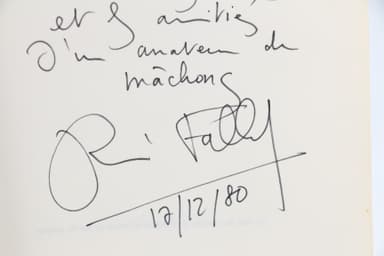 et les amitiés
d'un amateur de
mâchons
René Fallet
17/12/80